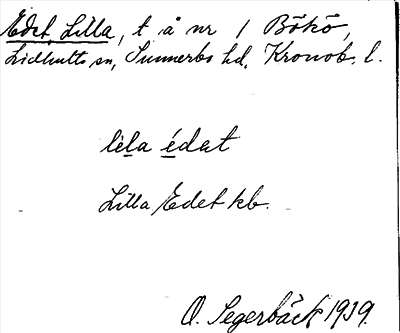 Edet, Lilla, t å nr 1 Bökö,
Lidhults sn, Sunnerbo hd, Kronob. l.
lìla édat
Lilla Edet kb.
O. Segerbäck 1939.